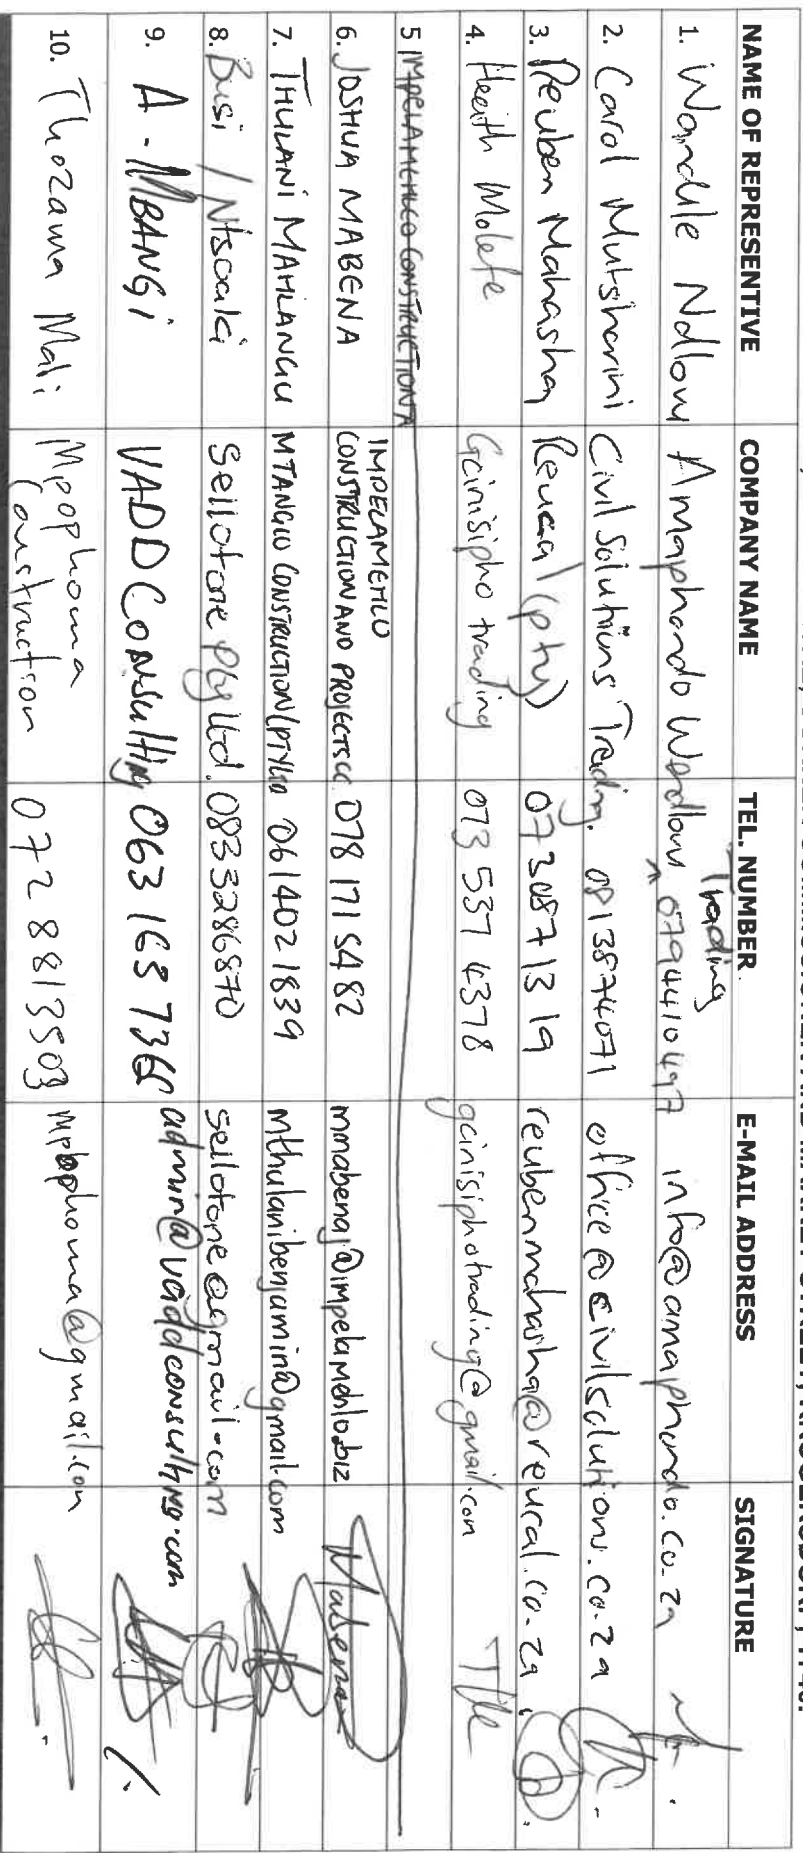 NAME OF REPRESENTIVE COMPANY NAME TEL. NUMBER E-MAIL ADDRESS SIGNATURE
1. Wandile Ndlovu Amaphando Wandlovu Trading 0794410497 info@amaphando.co.za
2. Carol Mutsharini Civil Solutions Trading. 0813874071 office@civilsolutions.co.za
3. Reuben Mahasha Reucal (pty) 0730871319 reubenmahasha@reucal.co.za
4. Heith Molefe Gcinisipho trading 073 537 4378 gcinisiphotrading@gmail.com
5 IMPELAMEHLO CONSTRUCTION A
6. JOSHUA MABENA IMPELAMEHLO CONSTRUCTION AND PROJECTS CC 078 171 5482 mmabenaj@impelamehlo.biz Mabena
7. THULANI MAHLANGU MTANGU CONSTRUCTION (PTY) LTD 061 402 1839 mthulanibenjamin@gmail.com
8. Busi / Ntsoaki Seilotone Pty Ltd. 0833286870 seilotone@gmail.com
9. A. MBANGI VADD Consulting 063 163 7365 admin@vaddconsulting.com
10. Thozama Mali Mpophoma Construction 0728813503 mpophoma@gmail.com